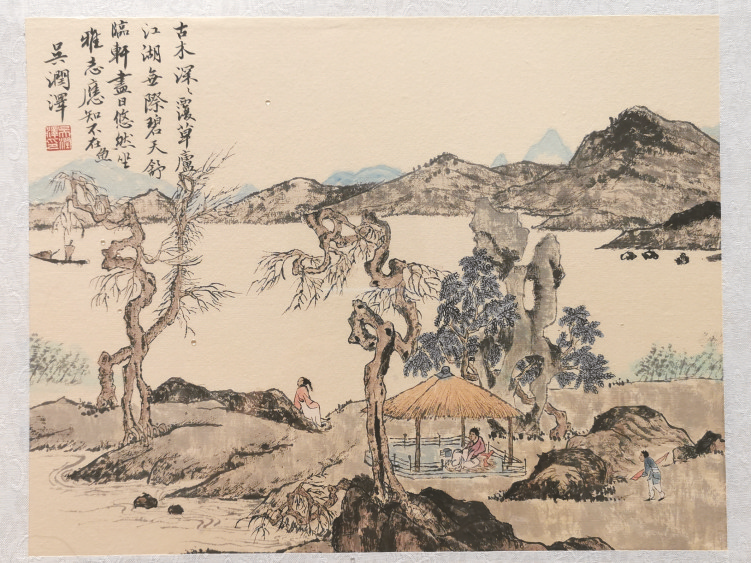 古木深々覆草廬
江湖無際碧天舒
臨軒盡日悠然坐
雅志應知不在魚
吳潤澤